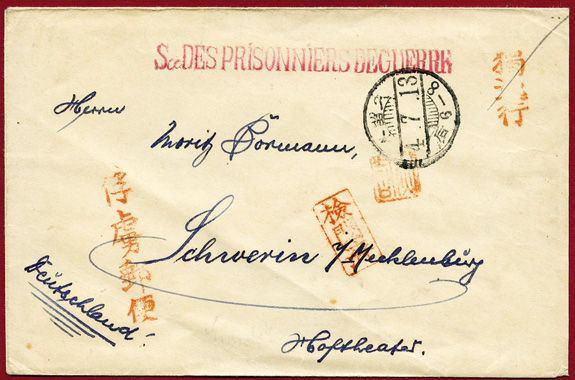 Sce DES PRISONNIERS DE GUERRE
4.7.13
Herrn
Moritz Börmann,
俘虜郵便
Schwerin i/Mecklenburg
Deutschland.
Hoftheater.